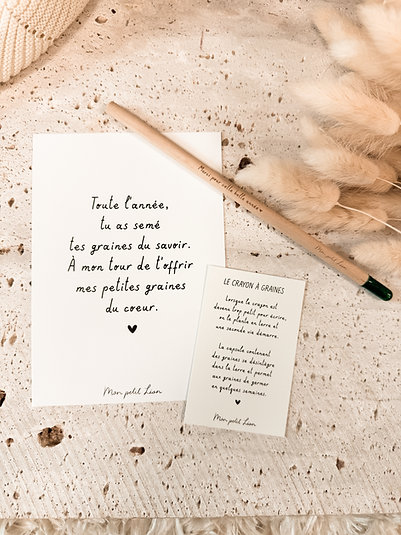 Merci pour cette belle année
Toute l'année,
tu as semé
tes graines du savoir.
À mon tour de t'offrir
mes petites graines
du coeur.
Mon petit Lion
LE CRAYON À GRAINES
Lorsque le crayon est
devenu trop petit pour écrire,
on le plante en terre et
une seconde vie démarre.
La capsule contenant
des graines se désintègre
dans la terre et permet
aux graines de germer
en quelques semaines.
Mon petit Lion